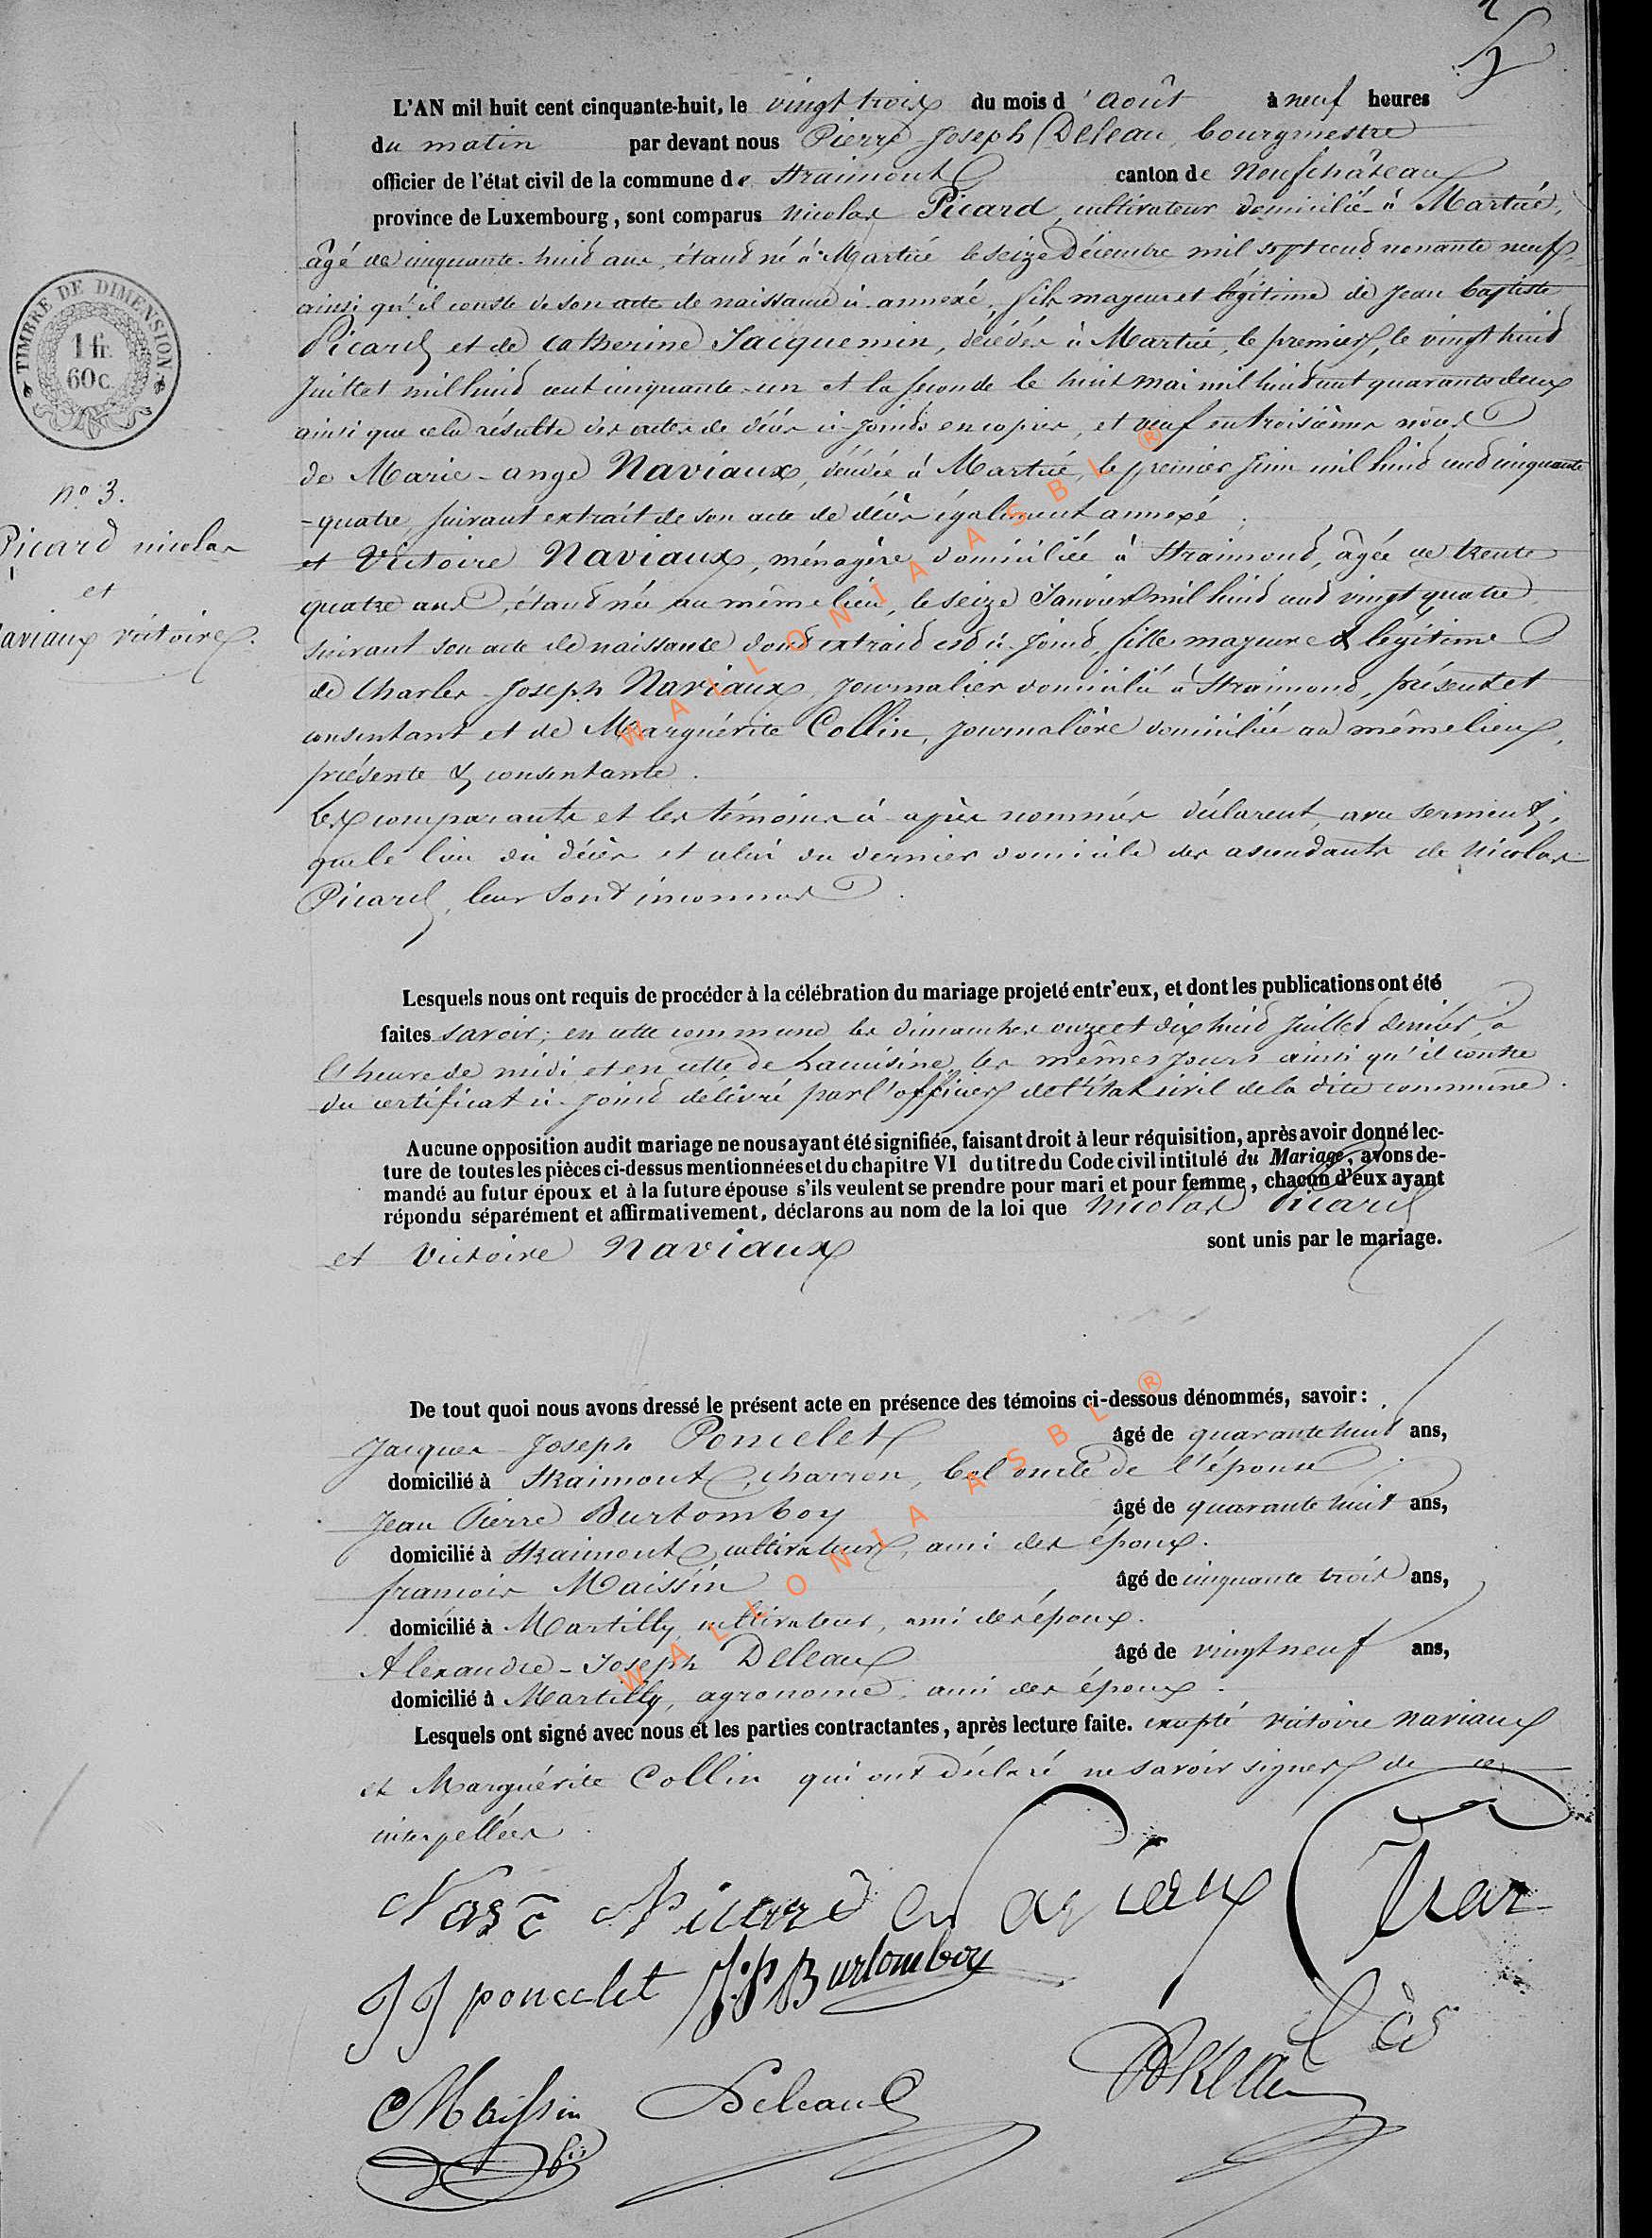 L'AN mil huit cent cinquante-huit, le vingt trois du mois d'Août à neuf heures
du matin par devant nous Pierre Joseph Deleau, bourgmestre
officier de l'état civil de la commune de Straimont canton de Neufchâteau
province de Luxembourg, sont comparus Nicolas Picard, cultivateur domicilié à Martué,
âgé de cinquante-huit ans, étant né à Martué le seize Décembre mil sept cent nonante neuf
ainsi qu'il conste de son acte de naissance ci-annexé, fils majeur et légitime de Jean Baptiste
Picard et de Catherine Jacquemin, décédés à Martué, le premier, le vingt huit
Juillet mil huit cent cinquante-un et la seconde le huit mai mil huit cent quarante deux
ainsi que cela résulte des actes de décès ci-joints en copies, et veuf en troisièmes nôces
de Marie-ange Naviaux, décédée à Martué, le premier Juin mil huit cent cinquante
-quatre, suivant extrait de son acte de décès également annexé.
et Victoire Naviaux, ménagère domiciliée à Straimont, âgée de trente
quatre ans, étant née au même lieu, le seize Janvier mil huit cent vingt quatre
suivant son acte de naissance dont extrait est ci-joint, fille majeure & légitime
de Charles-Joseph Naviaux, journalier domicilié à Straimont, présent et
consentant et de Marguérite Collin, journalière domiciliée au même lieu,
présente & consentante.
Les comparants et les témoins ci-après nommés déclarent, avec serment,
que le lieu du décès et celui du dernier domicile des ascendants de Nicolas
Picard, leur sont inconnus.
TIMBRE DE DIMENSION
1 fr.
60 c.
n° 3.
Picard nicolas
et
aviaux victoire.
Lesquels nous ont requis de procéder à la célébration du mariage projeté entr'eux, et dont les publications ont été
faites savoir; en cette commune les dimanches onze et dix huit Juillet dernier, à
l'heure de midi et en celle de Lacuisine les mêmes jours ainsi qu'il conste
du certificat ci-joint délivré par l'officier de l'état civil de la dite commune.
Aucune opposition audit mariage ne nous ayant été signifiée, faisant droit à leur réquisition, après avoir donné lec-
ture de toutes les pièces ci-dessus mentionnées et du chapitre VI du titre du Code civil intitulé du Mariage, avons de-
mandé au futur époux et à la future épouse s'ils veulent se prendre pour mari et pour femme, chacun d'eux ayant
répondu séparément et affirmativement, déclarons au nom de la loi que Nicolas Picard
et Victoire Naviaux sont unis par le mariage.
De tout quoi nous avons dressé le présent acte en présence des témoins ci-dessous dénommés, savoir:
Jacques-Joseph Poncelet âgé de quarante huit ans,
domicilié à Straimont, charron, bel oncle de l'épouse
Jean Pierre Burtomboy âgé de quarante huit ans,
domicilié à Straimont cultivateur, ami des époux.
françois Maissin âgé de cinquante trois ans,
domicilié à Martilly, cultivateur, ami des époux.
Alexandre-Joseph Deleau âgé de vingt neuf ans,
domicilié à Martilly, agronome, ami des époux.
Lesquels ont signé avec nous et les parties contractantes, après lecture faite. excepté victoire naviaux
et Marguérite Collin qui ont déclaré ne savoir signer de ce
interpellées.
Picard
JJ poncelet J.P Burtomboy
Maissin Deleau
WALLONIA ASBL ®
WALLONIA ASBL ®